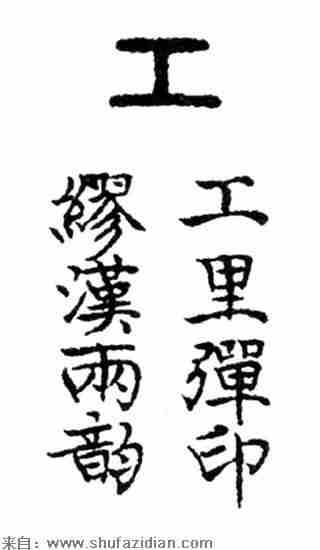 工
工里彈印
繆漢兩韵
来自：www.shufazidian.com